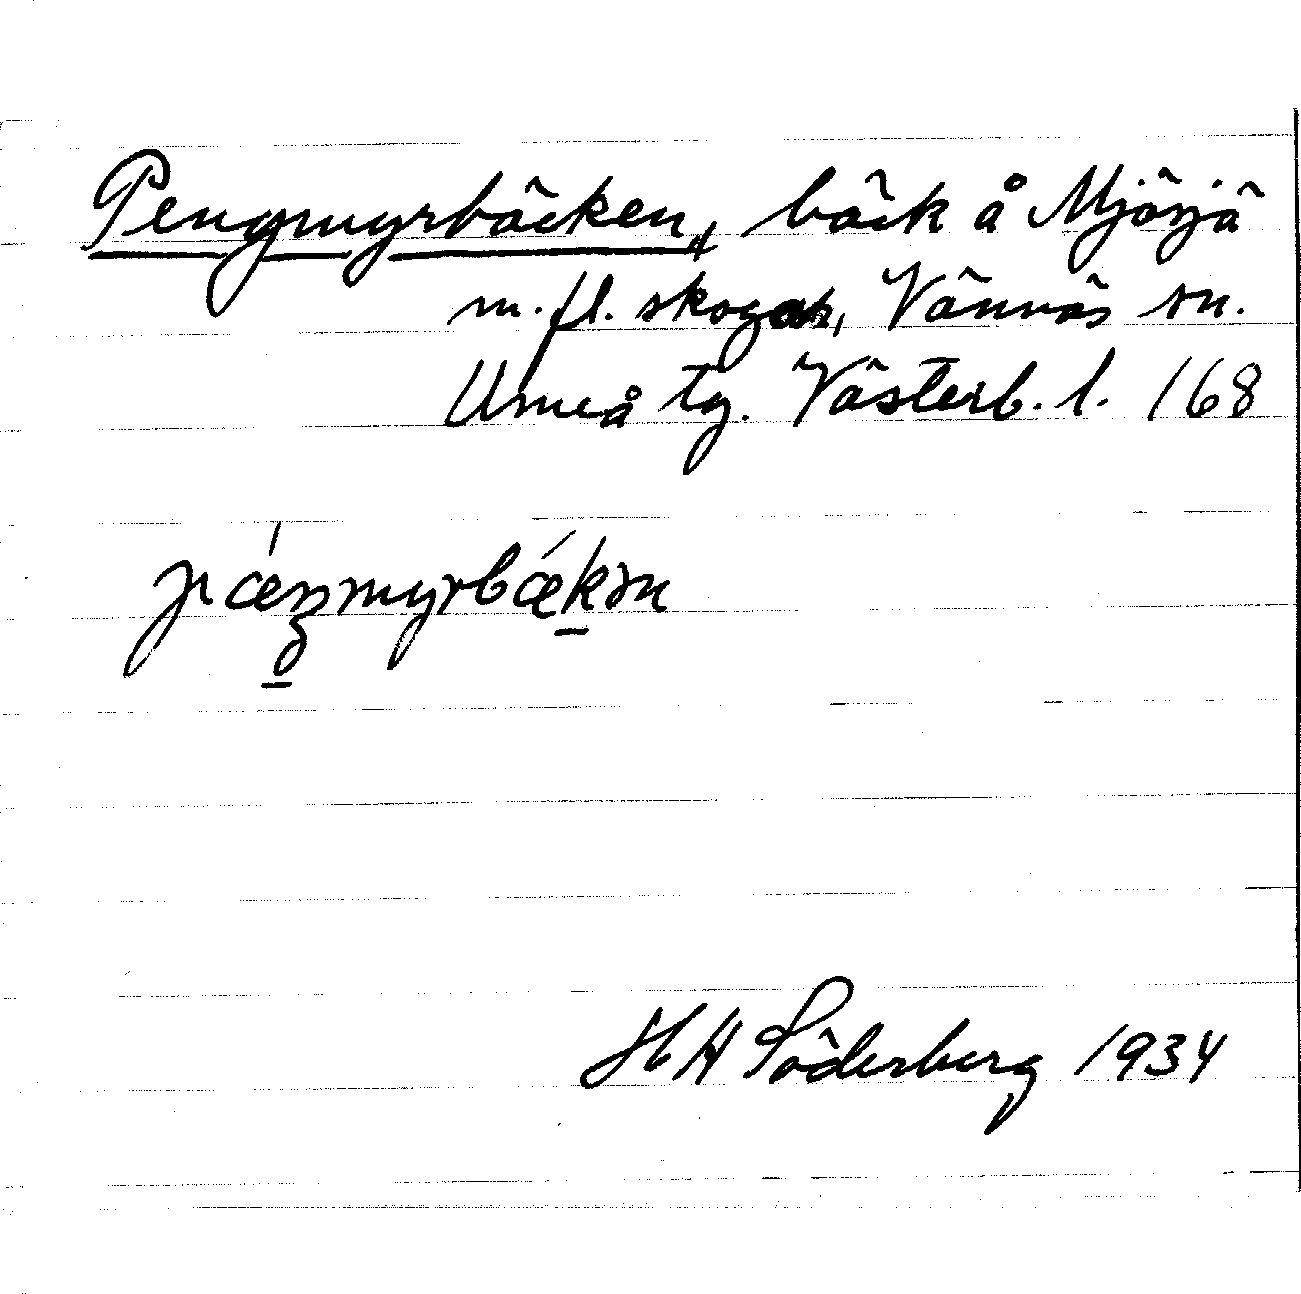 Pengmyrbäcken, bäck å Mjösjö
m. fl. skogar, Vännäs sn.
Umeå tg. Västerb. l. 168
HH Söderberg 1934